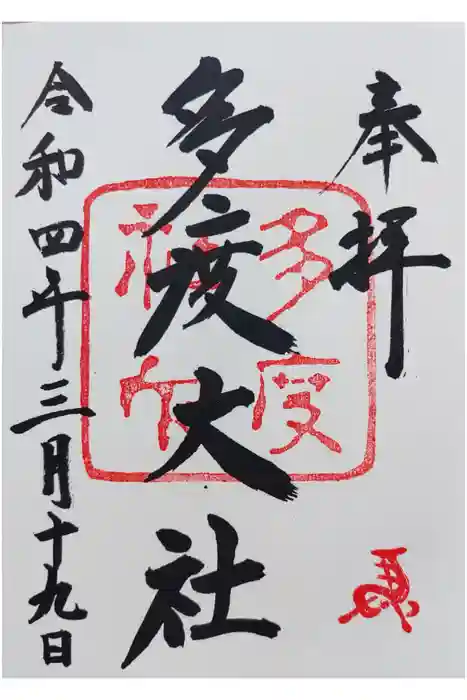 奉拝
多度大社
多度
神社
令和四年三月十九日